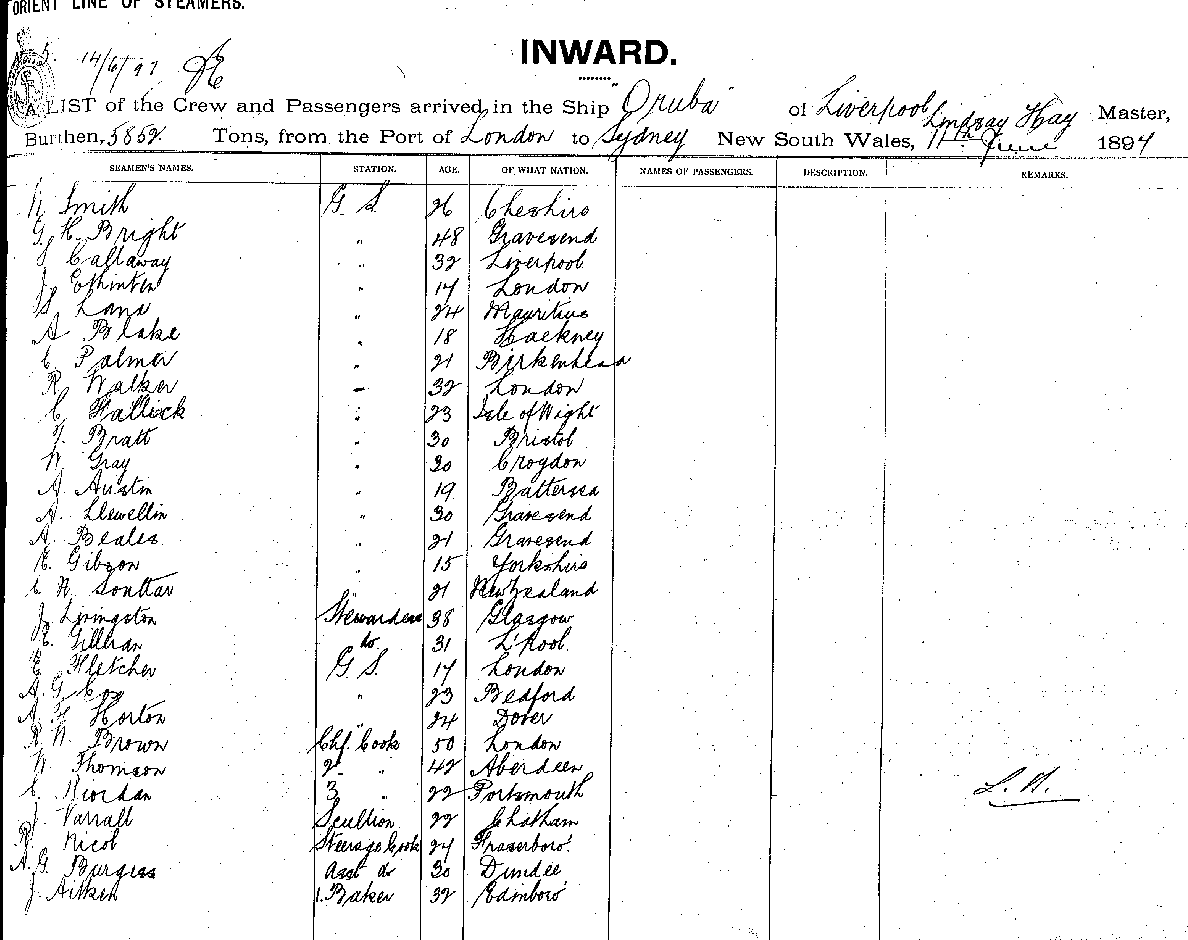 ORIENT LINE OF STEAMERS.
14/6/97
INWARD.
A LIST of the Crew and Passengers arrived in the Ship "Oruba" of Liverpool Lindsay Hay Master,
Burthen, 5852 Tons, from the Port of London to Sydney New South Wales, 11th June 1894
SEAMEN'S NAMES. STATION. AGE. OF WHAT NATION. NAMES OF PASSENGERS. DESCRIPTION. REMARKS.
Smith G. S. 26 Cheshire
G. H. Bright " 48 Gravesend
Callaway " 32 Liverpool
J. " 17 London
Lane " 24 Mauritius
A Blake " 18 Hackney
C Palmer " 21 Birkenhead
R. Walker " 32 London
C Hallick " 23 Isle of Wight
Pratt " 30 Bristol
W Gray " 30 Croydon
A Austin " 19 Battersea
A. Llewellin " 30 Gravesend
A Beales " 21 Gravesend
Gibson " 15 Yorkshire
C W Souttar " 21 New Zealand
J. Livingston Stewardess 38 Glasgow
E. do 31 L'Pool.
E Fletcher G. S. 17 London
A. G Cox " 23 Bedford
Horton " 24 Dover
R W Brown Chf. Cook 50 London
W Thomson 2 " 42 Aberdeen
C. Riordan 3 " 22 Portsmouth
L. H.
J. Varrall Scullion 22 Chatham
R. Nicol Steerage Cook 24 Fraserboro'
A. G. Burgess Asst do 30 Dundee
J Aitken 1. Baker 32 Edinboro'